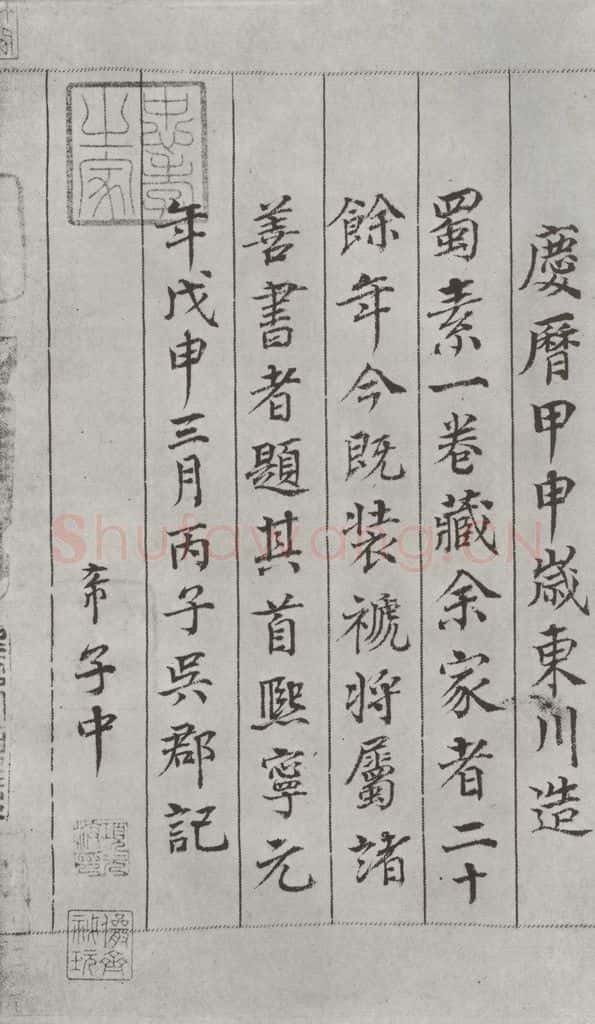 慶曆甲申歲東川造
蜀素一卷藏余家者二十
餘年今既裝褫將屬諸
善書者題其首熙寧元
年戊申三月丙子吳郡記
希子中
忠孝之家
Shufawang.CN